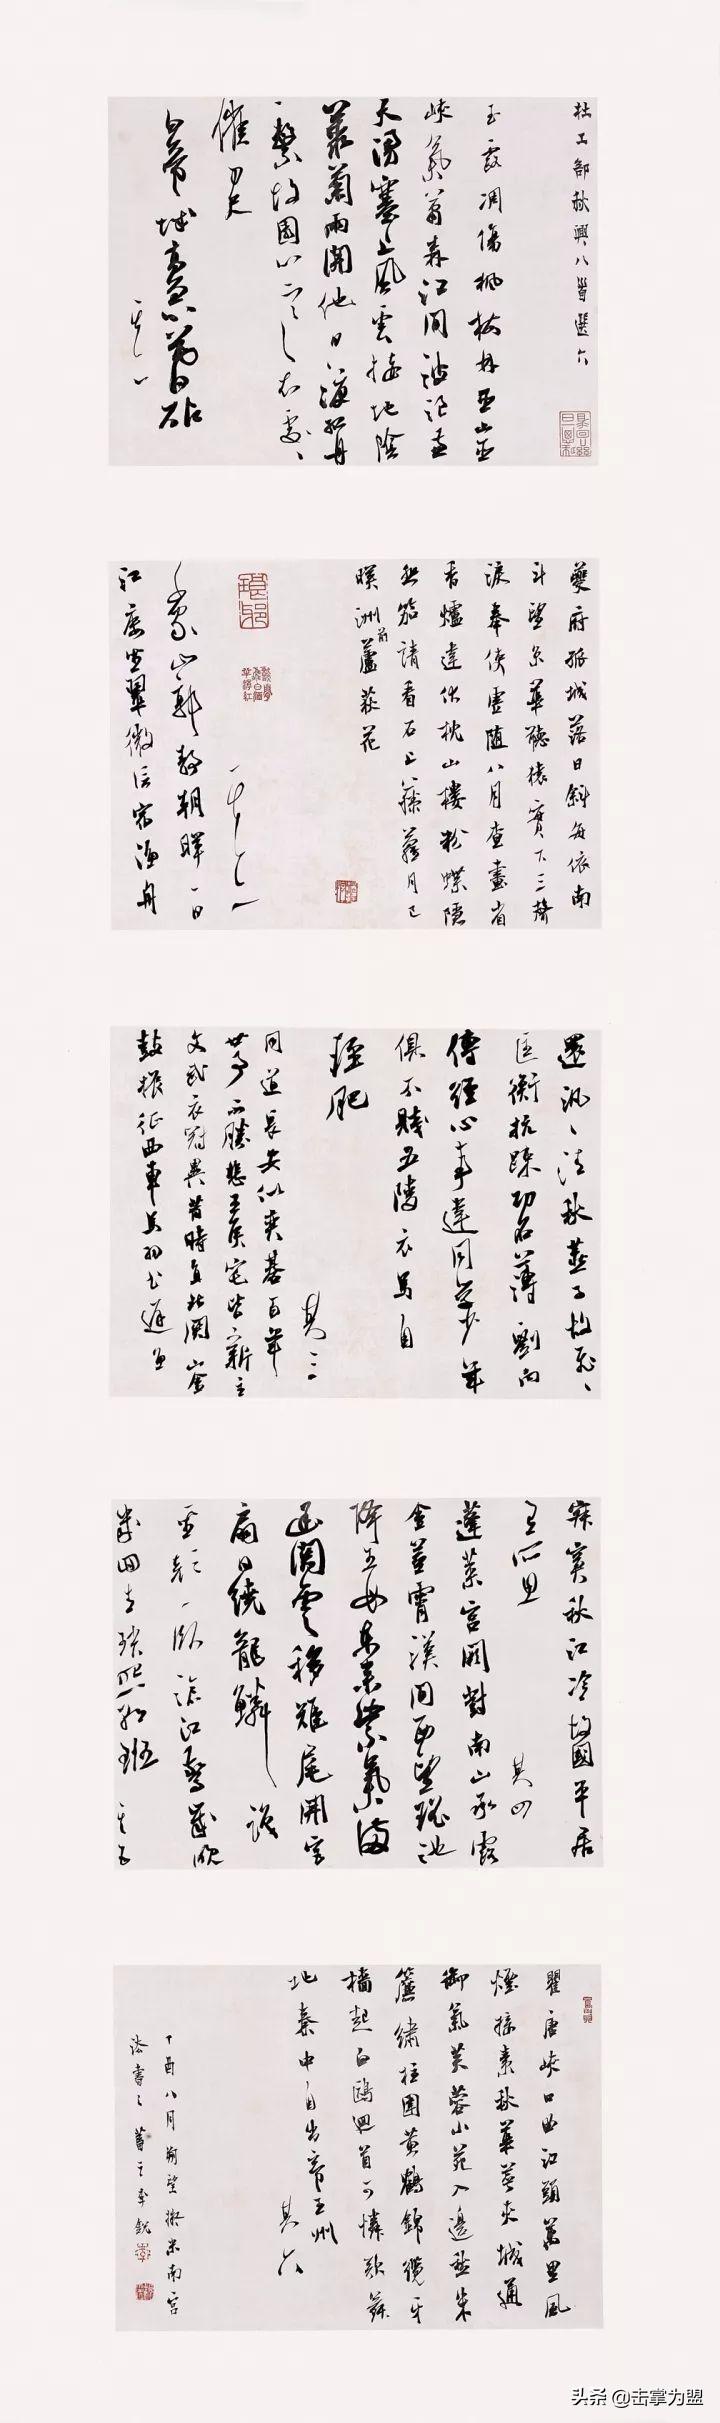 杜工部秋興八首選六
玉露凋傷楓樹林巫山巫
峽氣蕭森江間波浪兼
天湧塞上風雲接地陰
叢菊兩開他日淚孤舟
一繫故園心寒衣處處
催刀尺
白帝城高急暮砧
其一
夔府孤城落日斜每依南
斗望京華聽猿實下三聲
淚奉使虛隨八月查畫省
香爐違伏枕山樓粉堞隱
悲笳請看石上藤蘿月已
映洲前蘆荻花
其二
千家山郭靜朝暉一日
江樓坐翠微信宿漁舟
還汎汎清秋燕子故飛飛
匡衡抗疏功名薄劉向
傳經心事違同學少年
俱不賤五陵衣馬自
輕肥
其三
聞道長安似奕碁百年
世事不勝悲王侯宅皆新主
文武衣冠異昔時直北關山金
鼓振征西車馬羽書遲魚
龍
寂寞秋江冷故國平居
有所思
其四
蓬萊宮闕對南山承露
金莖霄漢間西望瑤池
降王母東來紫氣滿
函關雲移雉尾開宮
扇日繞龍鱗識
聖顏一臥滄江驚歲晚
幾回青瑣照朝班其五
瞿唐峽口曲江頭萬里風
煙接素秋華萼夾城通
御氣芙蓉小苑入邊愁朱
簾繡柱圍黃鶴錦纜牙
檣起白鷗迴首可憐歌舞
地秦中自古帝王州
其六
丁酉八月朔望擬米南宮
法書之
头条 @击掌为盟